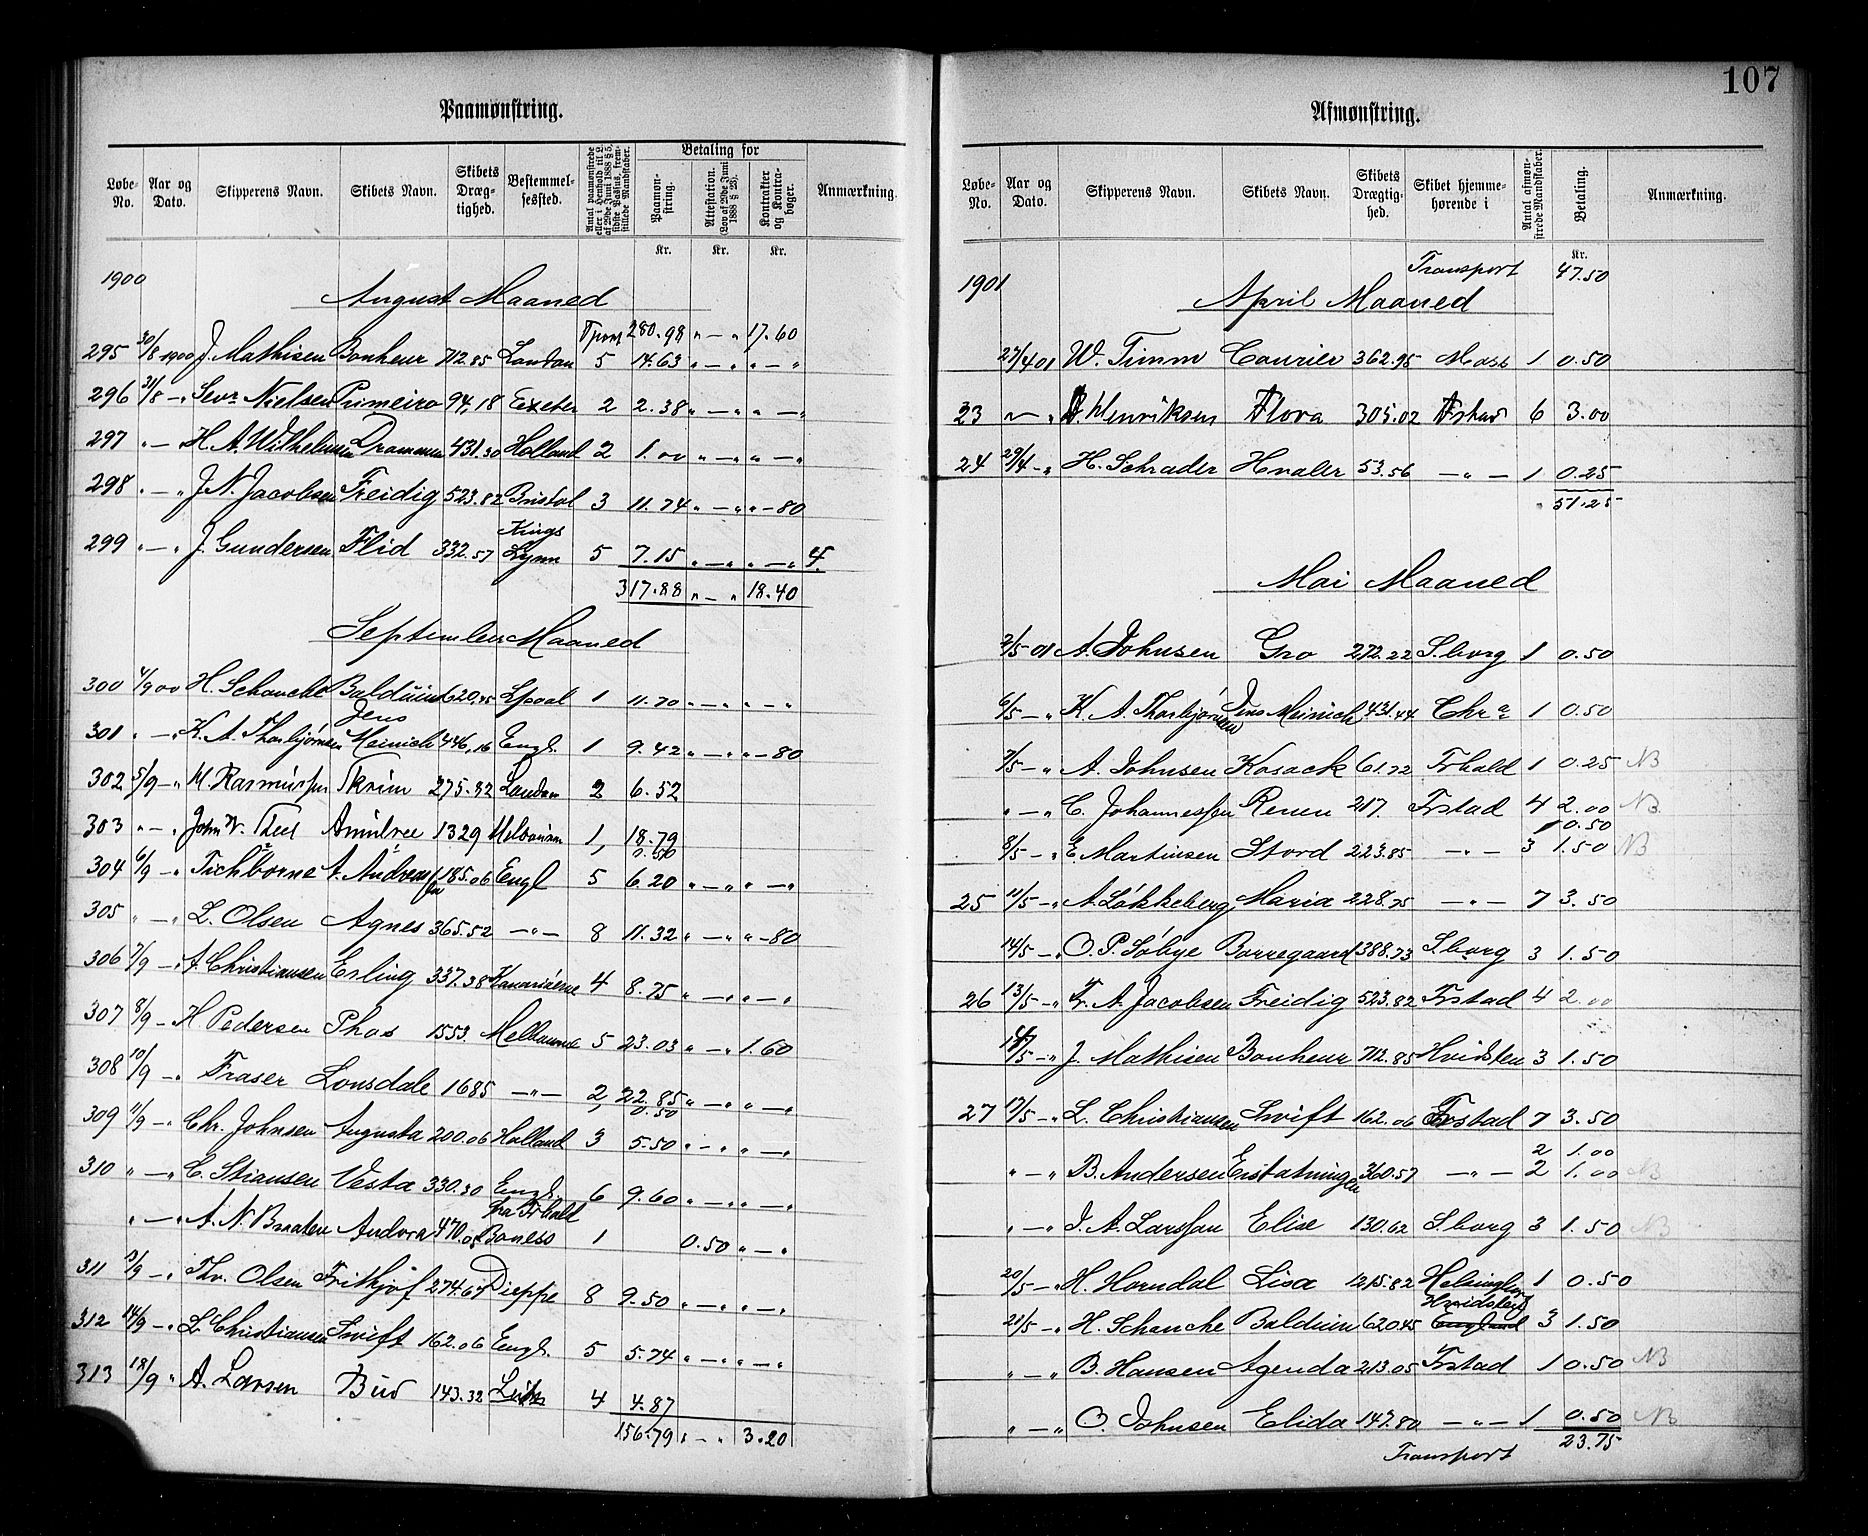 107
Paamønstring.
Løbe-No. Aar og Dato. Skipperens Navn. Skibets Navn. Skibets Dræg-tighed. Bestemmel-sessted. Betaling for Paamøn-string. Attestation. (Lov af 29de Juni 1888 § 28). Kontrakter og Kontra-bøger. Anmærkning.
Kr. Kr. Kr.
1900
August Maaned
280.98 „ — „ 17.60
295 30/8 1900 J. Mathisen Bonheur 712.85 London 5 14.63 „ — „ „ — „
296 31/8 — „ Sevr. Nielsen Primeiro 94,18 Exeter 2 2.38 „ — „ „ — „
297 „ — H. A. Wilhelmsen Drammen 431.30 Holland 2 1.00 „ — „ „ — „
298 „ — „ J. N. Jacobsen Freidig 523.82 Bristol 3 11.74 „ — „ „ — 80
299 „ — „ J. Gundersen Flid 332.57 Kings Lynn 5 7.15 „ — „ „ — „
317.88 „ — „ 18.40
September Maaned
300 4/9 00 H. Schanche Balduin 620,45 Lpool 1 11.70 „ — „ „ — „
301 „ — „ K. A. Thorbjørnsen Jens Meinich 446,16 Engl. 1 9.42 „ — „ „ — 80
302 5/9 — „ M Rasmussen Skrim 275.82 London 2 6.52
303 „ — „ John W. Amulree 1329 Melbourn 1, 18.79
0.50
304 6/9 — „ Tichborne A. Andreas 185.06 Engl 5 6.20 „ — „ „ — „
305 „ — „ L. Olsen Agnes 365.52 — „ — 8 11.32 „ — „ „ — 80
306 7/9 — „ A. Christiansen Erling 337.38 Kanariøerne 4 8.75 „ — „ „ — „
307 8/9 — „ H Pedersen Phos 1553. Melbourne 5 23.03 „ — „ 1.60
308 10/9 — „ Fraser Lonsdale 1685 — „ — 2, 22.85 „ — „ „ — „
0.50
309 11/9 — „ Chr. Johnsen Augusta 200.06 Holland 3 5.50 „ — „ „ — „
310 „ — „ C. Stiansen Vesta 330.30 Engl. 6 9.60 „ — „ „ — „
„ — „ A. N. Braaten Andora 470.05 fra Frhald Boness 1 0.50 „ — „
311 /9 — „ Thv. Olsen Frithjof 274.64 Dieppe 8 9.50 „ — „ „ — „
312 14/9 — „ L. Christiansen Swift 162.06 Engl. 5 5.74 „ — „ „ — „
313 18/9 „ A. Larsen Bud 143.32 Leith 4 4.87
156.79 „ — „ 3.20
Afmønstring.
Løbe-No. Aar og Dato. Skipperens Navn. Skibets Navn. Skibets Drægtig-hed. Skibet hjemme-hørende i Antal afmøn-strede Mandskaber. Betaling. Anmærkning.
Kr.
Transport 47.50
1901
April Maaned
27/4 01 W. Timm Courier 362.95 Moss 1 0.50
23 „ — „ Henriksen Flora 305.02 Frstad 6 3.00
24 29/4 — „ H. Schrader Hvaler 53.56 — „ — 1 0.25
51.25
Mai Maaned
2/5 01 A. Johnsen Gro 272.22 S.borg 1 0.50
6/5 — „ K. A. Thorbjørnsen Jens Meinich 431.44 Chra 1 0.50
7/5 — „ A. Johnsen Kosack 61.72 Frhald 1 0.25 NB
„ — „ C. Johannessen Renen 217. Frstad 4 2.00 NB
1 0.50
8/5 — „ E. Martinsen Stord 223.85 — „ — 3 1.50 NB
25 11/5 — „ A. Løkkeberg Maria 228.75 — „ — 7 3.50
14/5 — „ O. P. Søbye Borregaard 1388.73 S.borg 3 1.50
26 13/5 — „ Fr. A. Jacobsen Freidig 523.82 Frstad 4 2.00
/5 — „ J. Mathisen Bonheur 712.85 Hvidsten 3 1.50
27 17/5 — „ L. Christiansen Swift 162.06 Frstad 7 3.50
2 1.00
„ — „ B. Andersen Erstatningen 360.57 — „ — 2 1.00 NB
„ — „ J. A. Larssen Elise 130.62 S.borg 3 1.50 NB
20/5 — „ H. Horndal Lisa 1215.82 Helsingfors 1 0.50
21/5 — „ H. Schanche Balduin 620.45 Hvidsten England 3 1.50
„ — „ B. Hansen Agenda 213.05 Frstad 1 0.50 NB
„ — „ O. Johnsen Elida 147.80 — „ — 1 0.50 NB
23.75
Transport